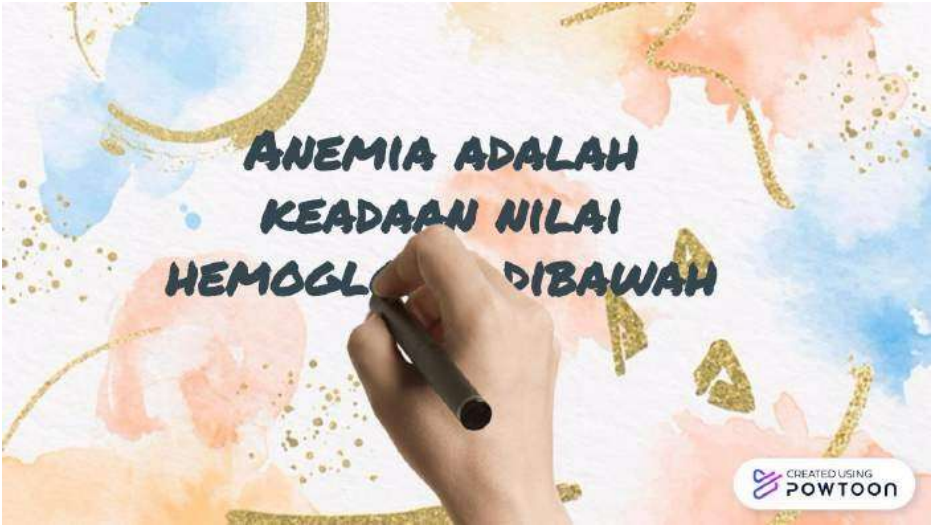 ANEMIA ADALAH
KEADAAN NILAI
DIBAWAH
CREATED USING
POWTOON